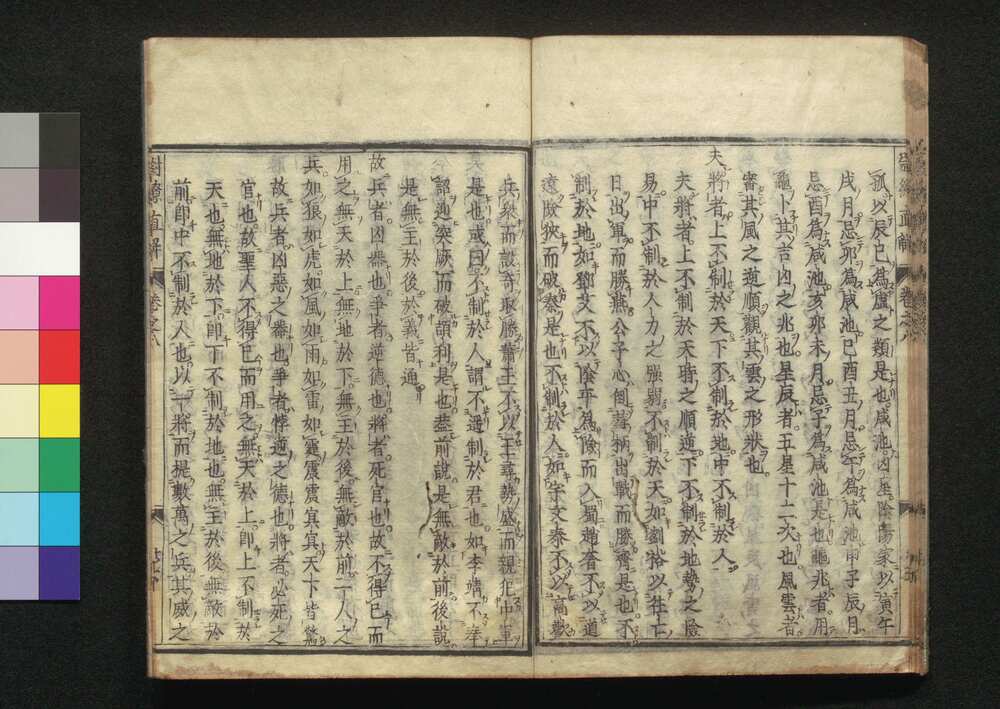 孤以辰巳為虛之類是也咸池凶星陰陽家以寅午
戌月忌卯為咸池巳酉丑月忌午為咸池申子辰月
忌酉為咸池亥卯未月忌子為咸池天也龜兆者用
龜卜其吉凶之兆也星辰者五星十二次也風雲者
審其風之逆順觀其雲之形狀也
夫將者上不制於天下不制於地中不制於人
夫將者上不制於天時之順逆下不制於地勢之險
易中不制於人力之強弱不制於天如劉裕以往亡
日出軍而勝燕公子心倒蓋柄出戰而勝齊是也不
制於地如鄧艾不以陰平為險而入蜀趙奢不以道
遠險狹而破秦是也不制於人如宇文泰不以高歡
兵衆而設奇取勝蕭王不以王尋勢盛而親犯中軍
是也或曰不制於人謂不遥制於君也如李靖不待
詔迎突厥而破頡利是也蓋前說是無敵於前後說
是無主於後於義皆通
故兵者凶器也爭者逆德也將者死官也故不得已而
用之無天於上無地於下無主於後無敵於前一人之
兵如狼如虎如風如雨如雷如霆震震冥冥天下皆驚
故兵者凶惡之器也爭者悖逆之德也將者必死之
官也故聖人不得已而用之無天於上即上不制於
天也無地於下即下不制於地也無主於後無敵於
前即中不制於人也以一將而提數萬之兵其威之
尉繚直解 卷之八